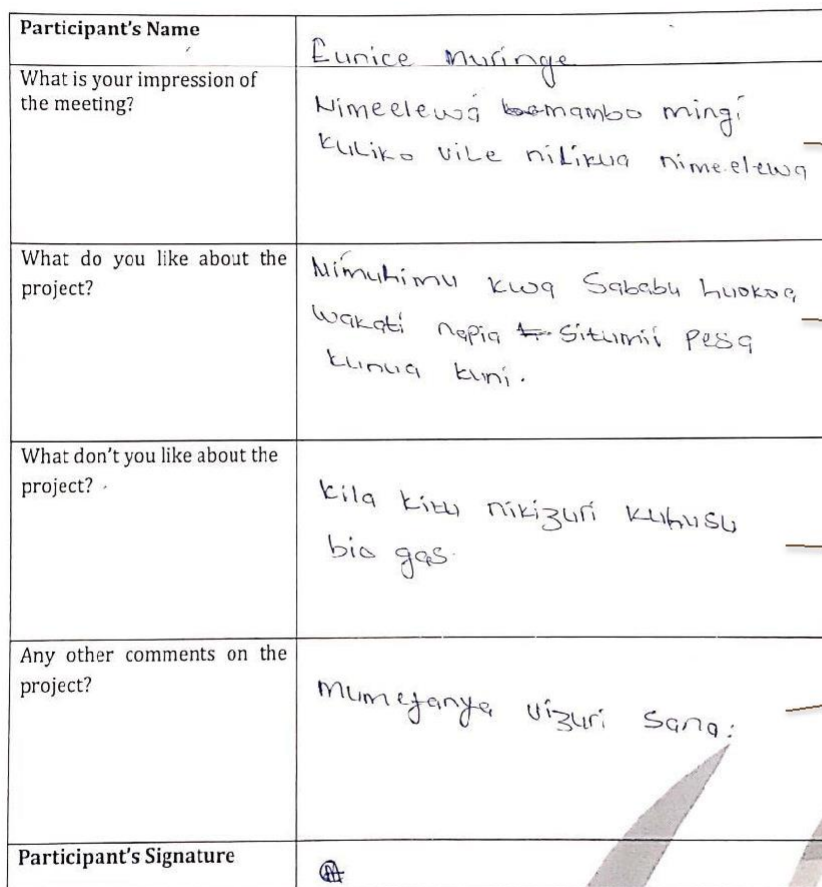 Participant's Name
Eunice Muringe
What is your impression of
the meeting?
Nimeelewa mambo mingi
kuliko vile nilikua nimeelewa
What do you like about the
project?
Nimuhimu kwa Sababu huokoa
wakati napia situmii pesa
kunua kuni.
What don't you like about the
project?
kila kitu nikizuri kuhusu
bio gas.
Any other comments on the
project?
mumefanya vizuri sana.
Participant's Signature